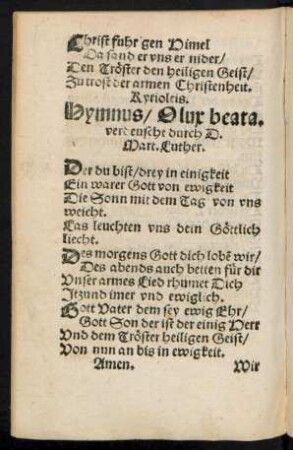 Christ fuhr gen Himel
Da sand er vns er nider/
Den Tröster den heiligen Geist/
Zu trost der armen Christenheit.
Kyrioleis.
Hymnus/ O lux beata.
verdeuscht durch D.
Mart. Luther.
Der du bist/ drey in einigkeit
Ein warer Gott von ewigkeit
Die Sonn mit dem Tag von vns
weicht.
Las leuchten vns dein Göttlich
liecht.
Des morgens Gott dich lobẽ wir/
Des abends auch betten für dir
Vnser armes Lied rhumet Dich
Jtzund imer vnd ewiglich.
Gott Vater dem sey ewig Ehr/
Gott Son der ist der einig Herr
Vnd dem Tröster heiligen Geist/
Von nun an bis in ewigkeit.
Amen. Wir